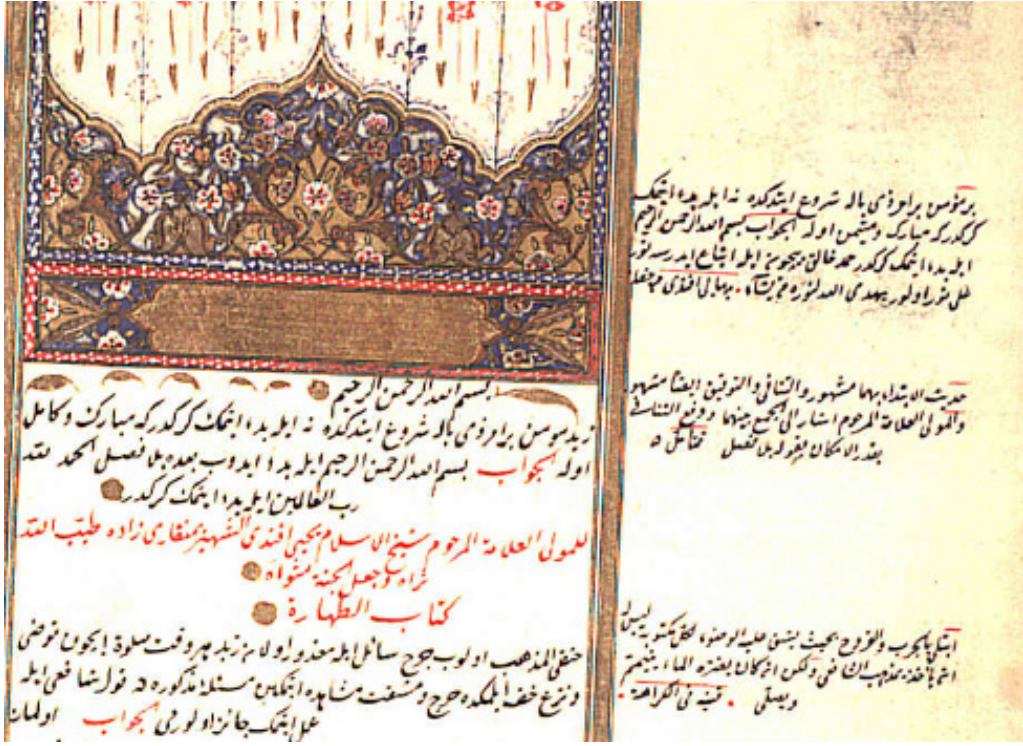 بسم الله الرحمن الرحيم
زيد مؤمن بر امر ذى باله شروع ايتدكده نه ايله بدء ايتمك كركدركه مبارك وكامل
اوله الجواب بسم الله الرحمن الرحيم ايله بدء ايدوب بعده بلا فصل الحمد لله
رب العالمين ايله بدء ايتمك كركدر
للمولى العلامة المرحوم شيخ الاسلام يحيى افندى الشهير بمنقارى زاده طيب الله
ثراه وجعل الجنة مثواه
كتاب الطهارة
حنفى المذهب اولوب جرح سائل ايله معذور اولان زيد هر وقت صلوة ايچون توضى
ونزع خف ايلمكده حرج ومشقت مشاهده ايتمكين مسئله مذكوره ده قول شافعى ايله
عمل ايتمك جائز اولورمى الجواب اولماز
بر مؤمن بر امر ذى باله شروع ايتدكده نه ايله بدء ايتمك
كركدركه مبارك ومتيمن اوله الجواب بسم الله الرحمن الرحيم
ايله بدء ايتمك كركدر حمد خالق بيچونه ايله اتباع ايدرسه نور
على نور اولور يهدى الله لنوره من يشاء بهايى افندى
حديث الابتداء بهما مشهور والتنافى والتوفيق ايضا مشهور
والمولى العلامة المرحوم اشار الى الجمع بينهما ودفع التنافى
بقدر الامكان بقوله بلا فصل فتأمل
ابتلى بالجرب والقروح بحيث يشق عليه الوضوء لكل مكتوبة ليس له
ان يأخذ بمذهب الشافعى ولكن ان كان يضره الماء يتيمم
ويصلى قنيه فى الكراهة